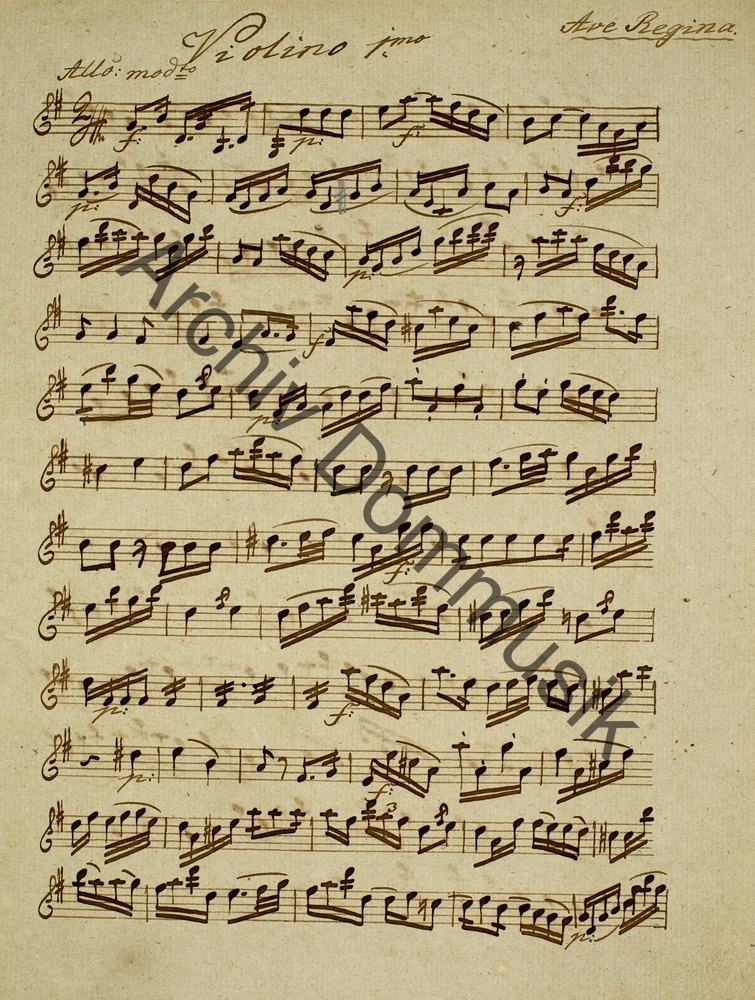 Ave Regina.
Violino jmo
Allo: modto
f: p: f:
p: f:
p:
f:
p:
f:
p: f:
p: f:
3
p:
Archiv Dommusik